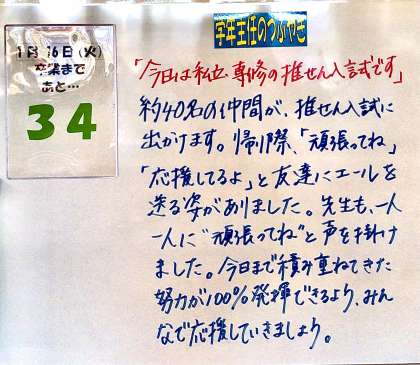 学年主任のつぶやき
1月16日(火)
卒業まで
あと…
34
「今日は私立、専修の推せん入試です」
約40名の仲間が、推せん入試に
出かけます。帰り際、「頑張ってね」
「応援してるよ」と友達にエールを
送る姿がありました。先生も、一人
一人に"頑張ってね"と声を掛け
ました。今日まで積み重ねてきた
努力が100%発揮できるよう、みん
なで応援していきましょう。